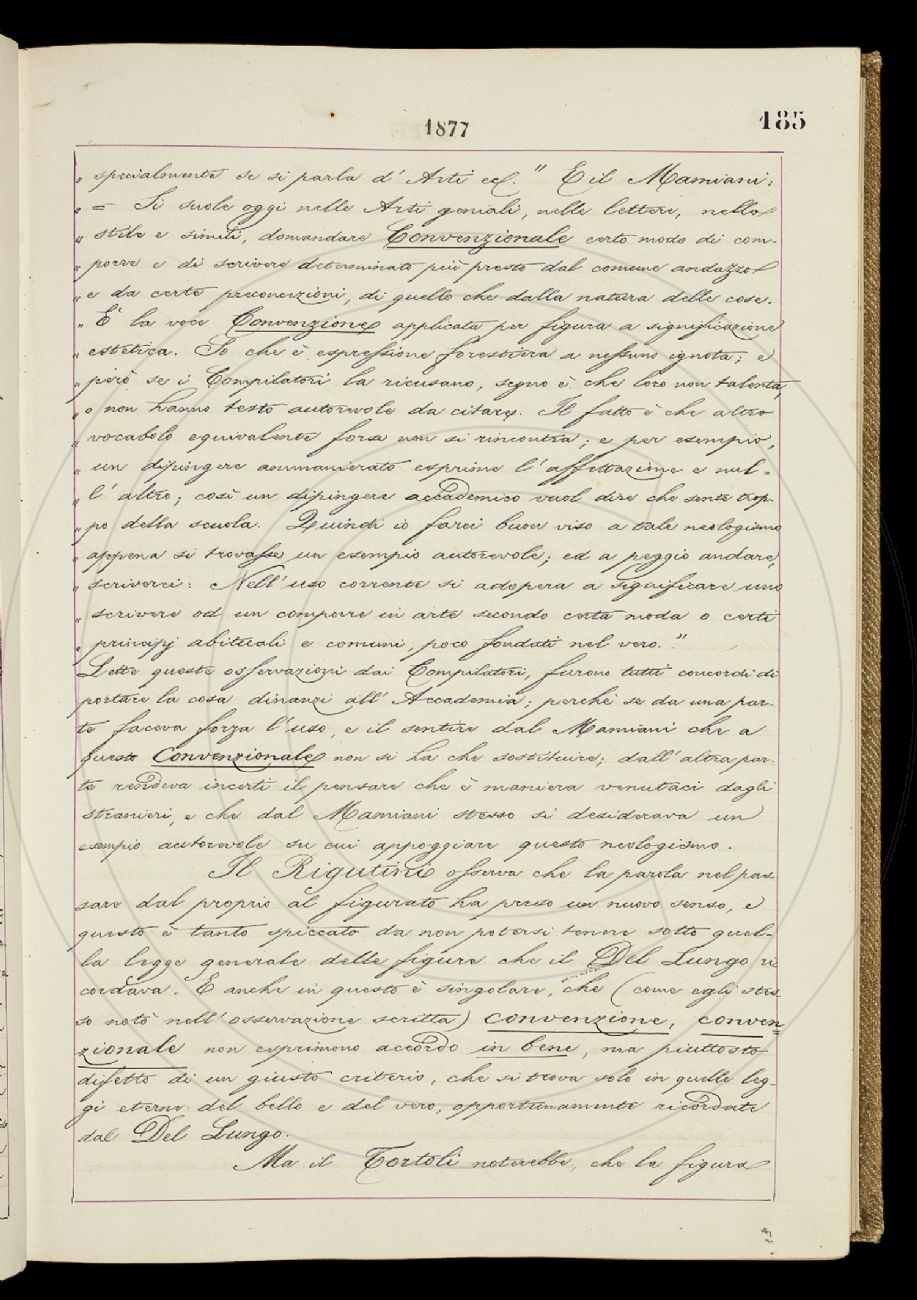 1877
185
„ specialmente se si parla d'Arti ecc." E il Mamiani:
„ = Si suole oggi nelle Arti geniali, nelle lettere, nello
„ stile e simili, domandare Convenzionale certo modo di com-
„ porre e di scrivere determinato più presto dal comune andazzo
„ e da certe preconcezioni, di quello che dalla natura delle cose.
„ È la voce Convenzione applicata per figura a significazione
„ estetica. So che è espressione forestiera a nessuno ignota; e
„ però se i Compilatori la ricusano, segno è che loro non talenta,
„ o non hanno testo autorevole da citare. Il fatto è che altro
„ vocabolo equivalente forse non si rincontra; e per esempio,
„ un dipingere ammanierato esprime l'affettazione e nul-
„ l'altro; così un dipingere accademico vuol dire che sente trop-
„ po della scuola. Quindi io farei buon viso a tale neologismo
„ appena si trovasse un esempio autorevole; ed a peggio andare,
„ scriverei: Nell'uso corrente si adopera a significare uno
„ scrivere od un comporre in arte secondo certa moda o certi
„ principj abituali e comuni, poco fondati nel vero."
Lette queste osservazioni dai Compilatori, furono tutti concordi di
portare la cosa dinanzi all'Accademia; perchè se da una par-
te faceva forza l'uso, e il sentire dal Mamiani che a
questo Convenzionale non si ha che sostituire; dall'altra par-
te rendeva incerti il pensare che è maniera venutaci dagli
stranieri, e che dal Mamiani stesso si desiderava un
esempio autorevole su cui appoggiare questo neologismo.
Il Rigutini osserva che la parola nel pas
sare dal proprio al figurato ha preso un nuovo senso, e
questo è tanto spiccato da non potersi tenere sotto quel-
la legge generale delle figure che il Del Lungo ri
cordava. E anche in questo è singolare, che (come egli stes
so notò nell'osservazione scritta) convenzione, conven=
zionale non esprimono accordo in bene, ma piuttosto
difetto di un giusto criterio, che si trova solo in quelle leg-
gi eterne del bello e del vero, opportunamente ricordate
dal Del Lungo.
Ma il Tortoli noterebbe, che la figura